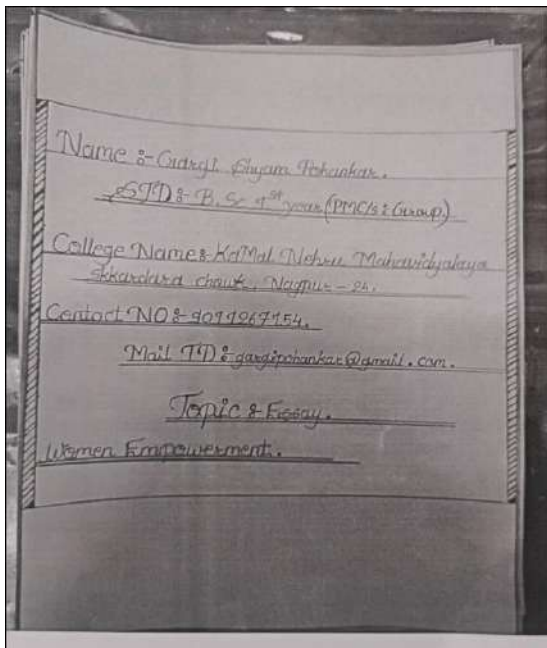 Name :- Gargi Shyam Pohankar.
STD :- B.Sc 1st year (PMC/s : Group.)
College Name :- KaMal Nehru Mahavidyalaya
Skkardara chowk, Nagpur - 24.
Contact NO :- 9011267154.
Mail ID :- gargipohankar@gmail.com.
Topic :- Essay.
Women Empowerment.